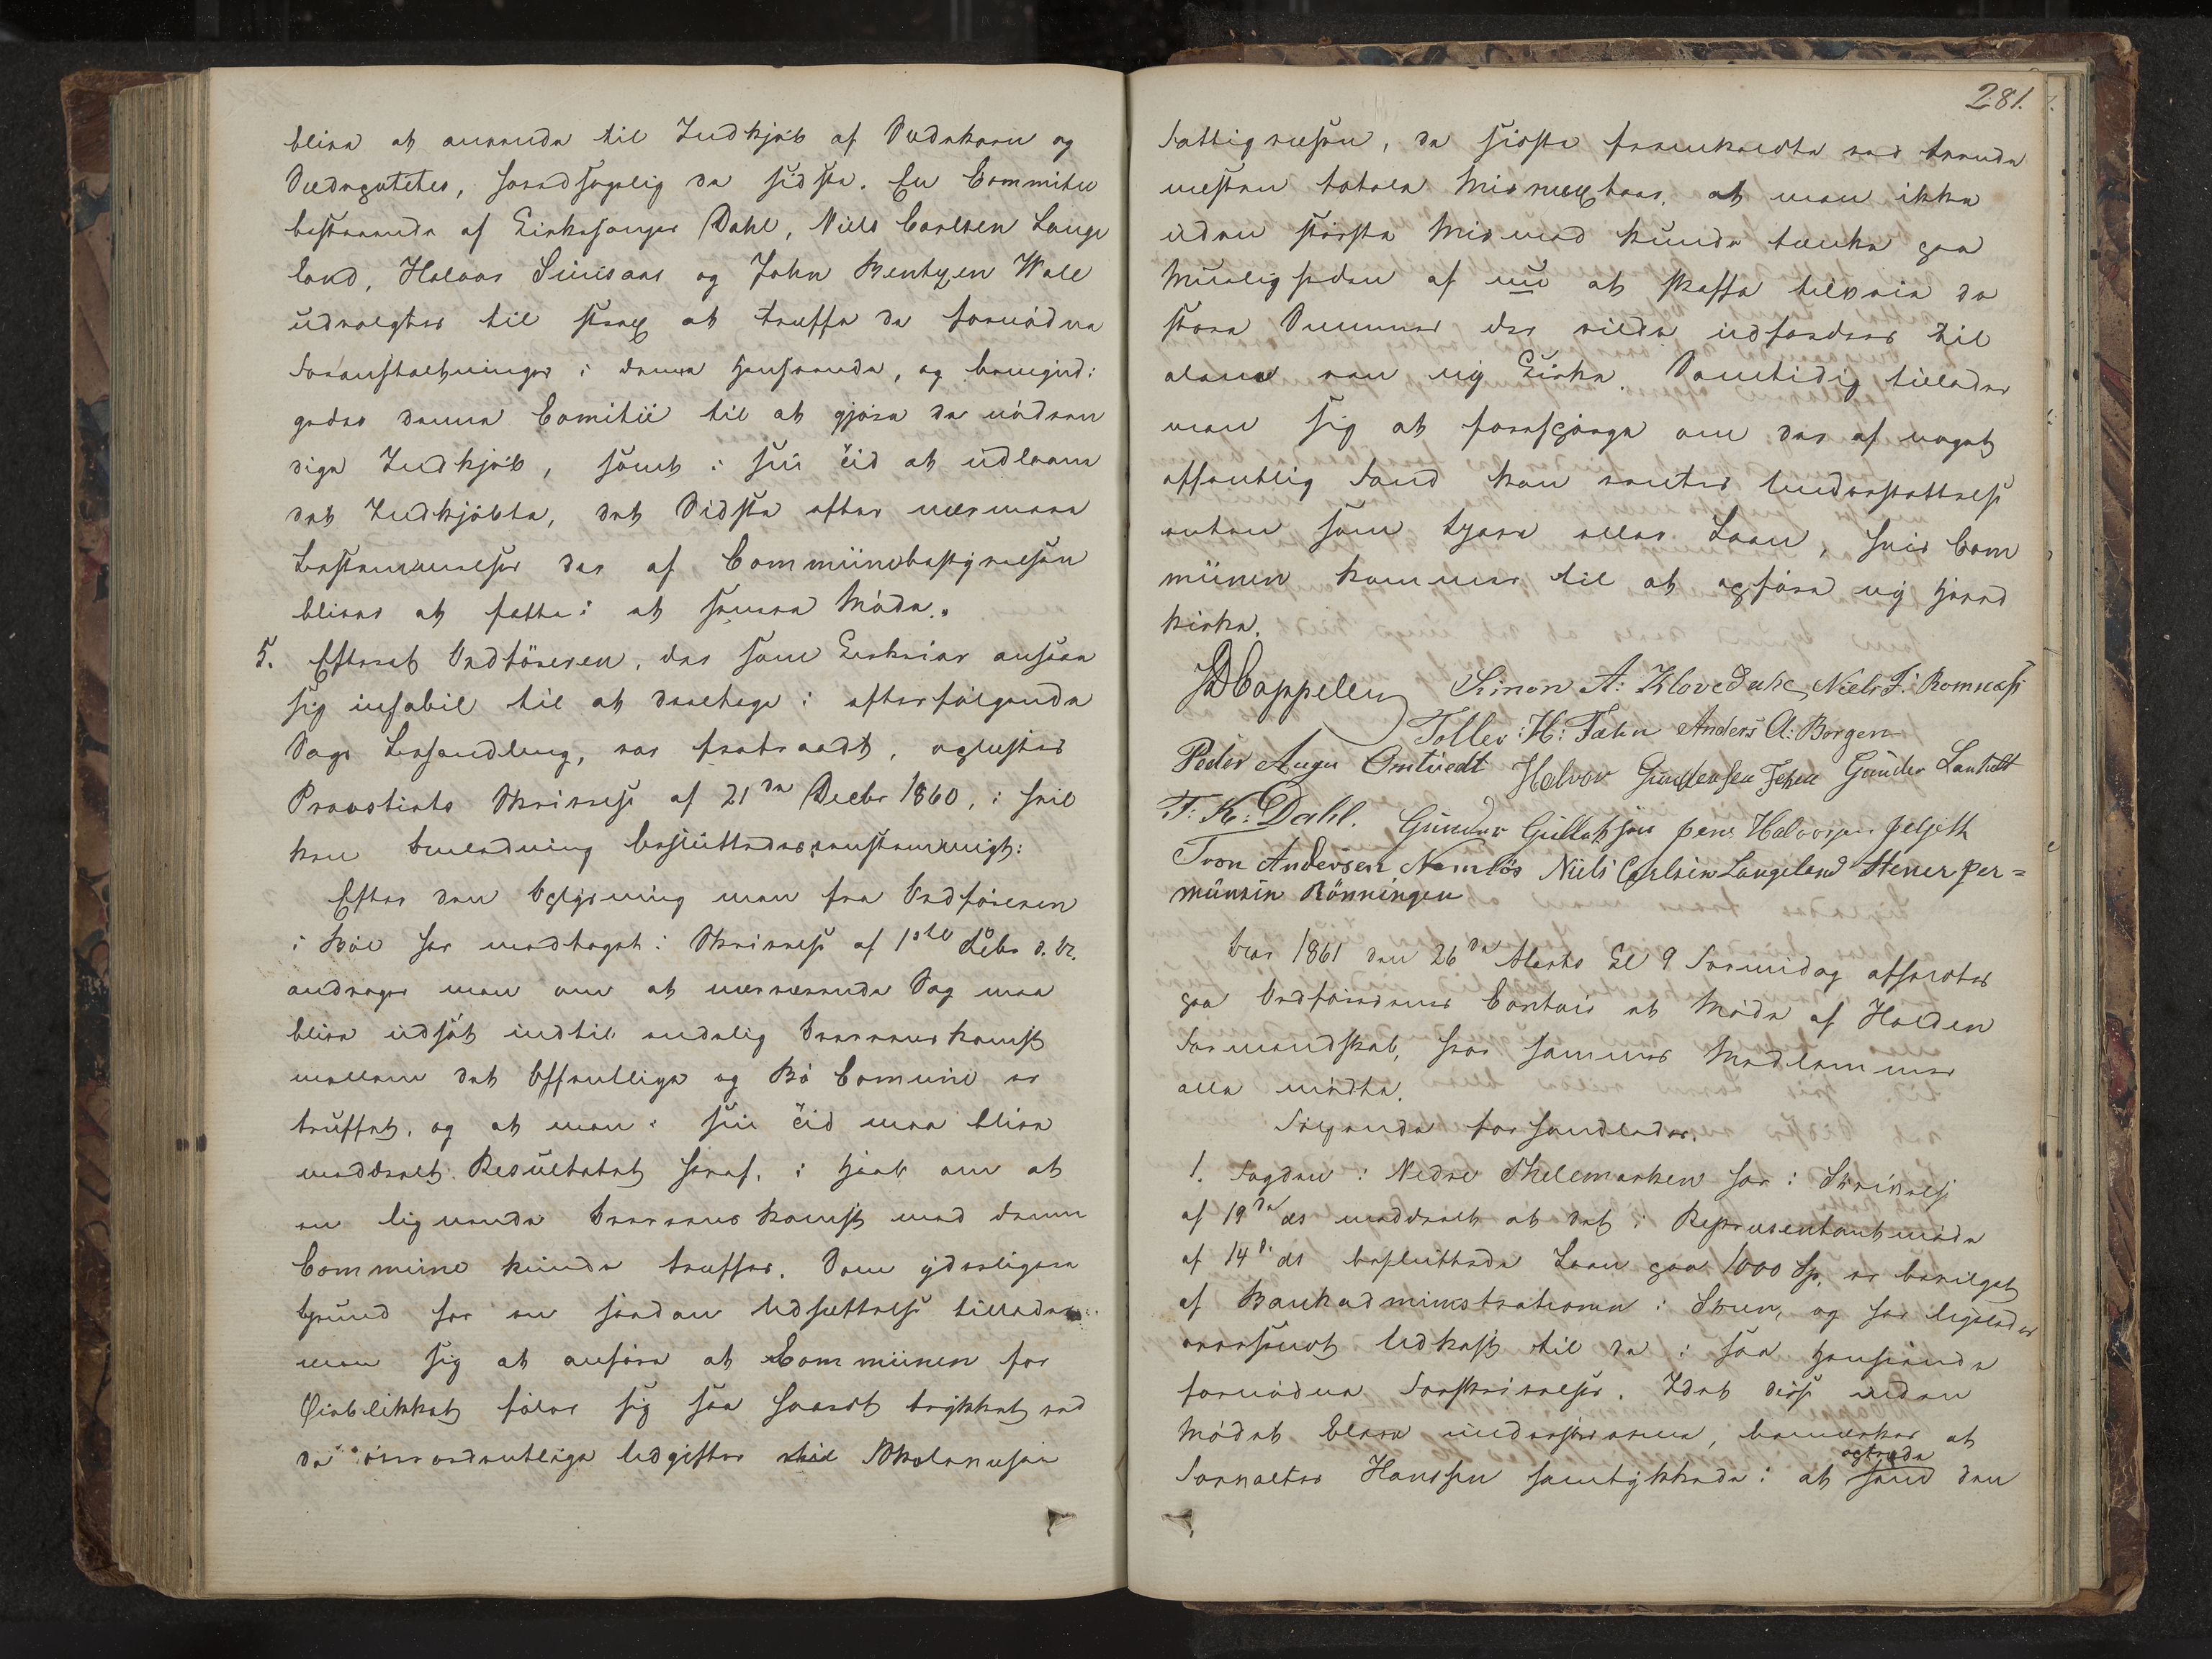 blive at anvende til Indkjöb af Sædekorn og
Sædepoteter, hovedsagelig de sidste. En Commitee
bestaaende af Kirkesanger Dahl, Niels Carlsen Lange
land, Halvor Siurisaas og John Bentzen Wale
udvalgtes til strax at træffe de fornödne
Foranstaltninger i denne Henseende, og bemyndi-
gedes denne Comitee til at gjöre de nödven
dige Indkjöb, samt i sin Tid at udlaane
det Indkjöbte, det Sidste efter nærmere
Bestemmelser der af Communebestyrelsen
bliver at fatte i et senere Möde.
5. Efterat Ordföreren, der som Kirkeeier ansaae
sig inhabil til at deeltage i efterfölgende
Sags Behandling, var fratraadt, oplæstes
Provstiets Skrivelse af 21de Decbr 1860, i hvil
ken Anledning besluttedes eenstemmigt:
Efter den Oplysning man fra Ordföreren
i Böe har modtaget i Skrivelse af 1ste Febr d. A.
andrager man om at nærværende Sag maa
blive udsat indtil endelig Overeenskomst
mellem det Offentlige og Bö Comune er
truffet, og at man i sin Tid maa blive
meddeelt Resultatet heraf, i Haab om at
en lignende Overeenskomst med denne
Commune kunde træffes. Som yderligere
Grund for en saadan Udsættelse tillader
man sig at anföre at Communen for
Öieblikket föler sig saa haardt trykket ved
de overordentlige Udgifter til Skolevæsen
281.
Fattigvæsen, de sidste fremkaldte ved trende
næsten totale Misvæxtaar, at man ikke
uden störste Mismod kunde tænke paa
Muligheden af nu at skaffe tilveie de
store Summer der vilde udfordres til
alene een ny Kirke. Samtidig tillader
man sig at foresp­örge om der af noget
offentlig Fond kan ventes Understöttelse
enten som Gave eller Laan, hvis Com
munen kommer til at opföre ny Hoved
kirke.
D Cappelen Simon A: Klovedale Niels J. Romnæs
Tollev: H: Fæhn Anders A: Borgen
Peder Aug Omtvedt Halvor Gundersen Gunder Lantvedt
T: K: Dahl. Gunder Gullaksen Jens Halvorsen
Tron Andersen Namlös Niels Carlsen Langeland Stener Per=
munsen Rönningen
Aar 1861 den 26de Marts Kl 9 Formidag afholdtes
paa Ordförerens Contoir et Möde af Holden
Formandskab, hvor sammes Medlemmer
alle mödte.
Fölgende forhandledes.
1. Fogden i Nedre Thelemarken har i Skrivelse
af 19de ds meddeelt at det i Repræsentantmöde
af 14de ds besluttede Laan paa 1000 Sp. er bevilget
af Bankadministrationen i Skien, og har ligeledes
oversendt Udkast til de i saa Henseende
fornödne Forskrivelser. Idet disse inden
Mödet bleve underskrevne, bemærkes at
optræde
Forvalter Hanssen samtykkede i at som den